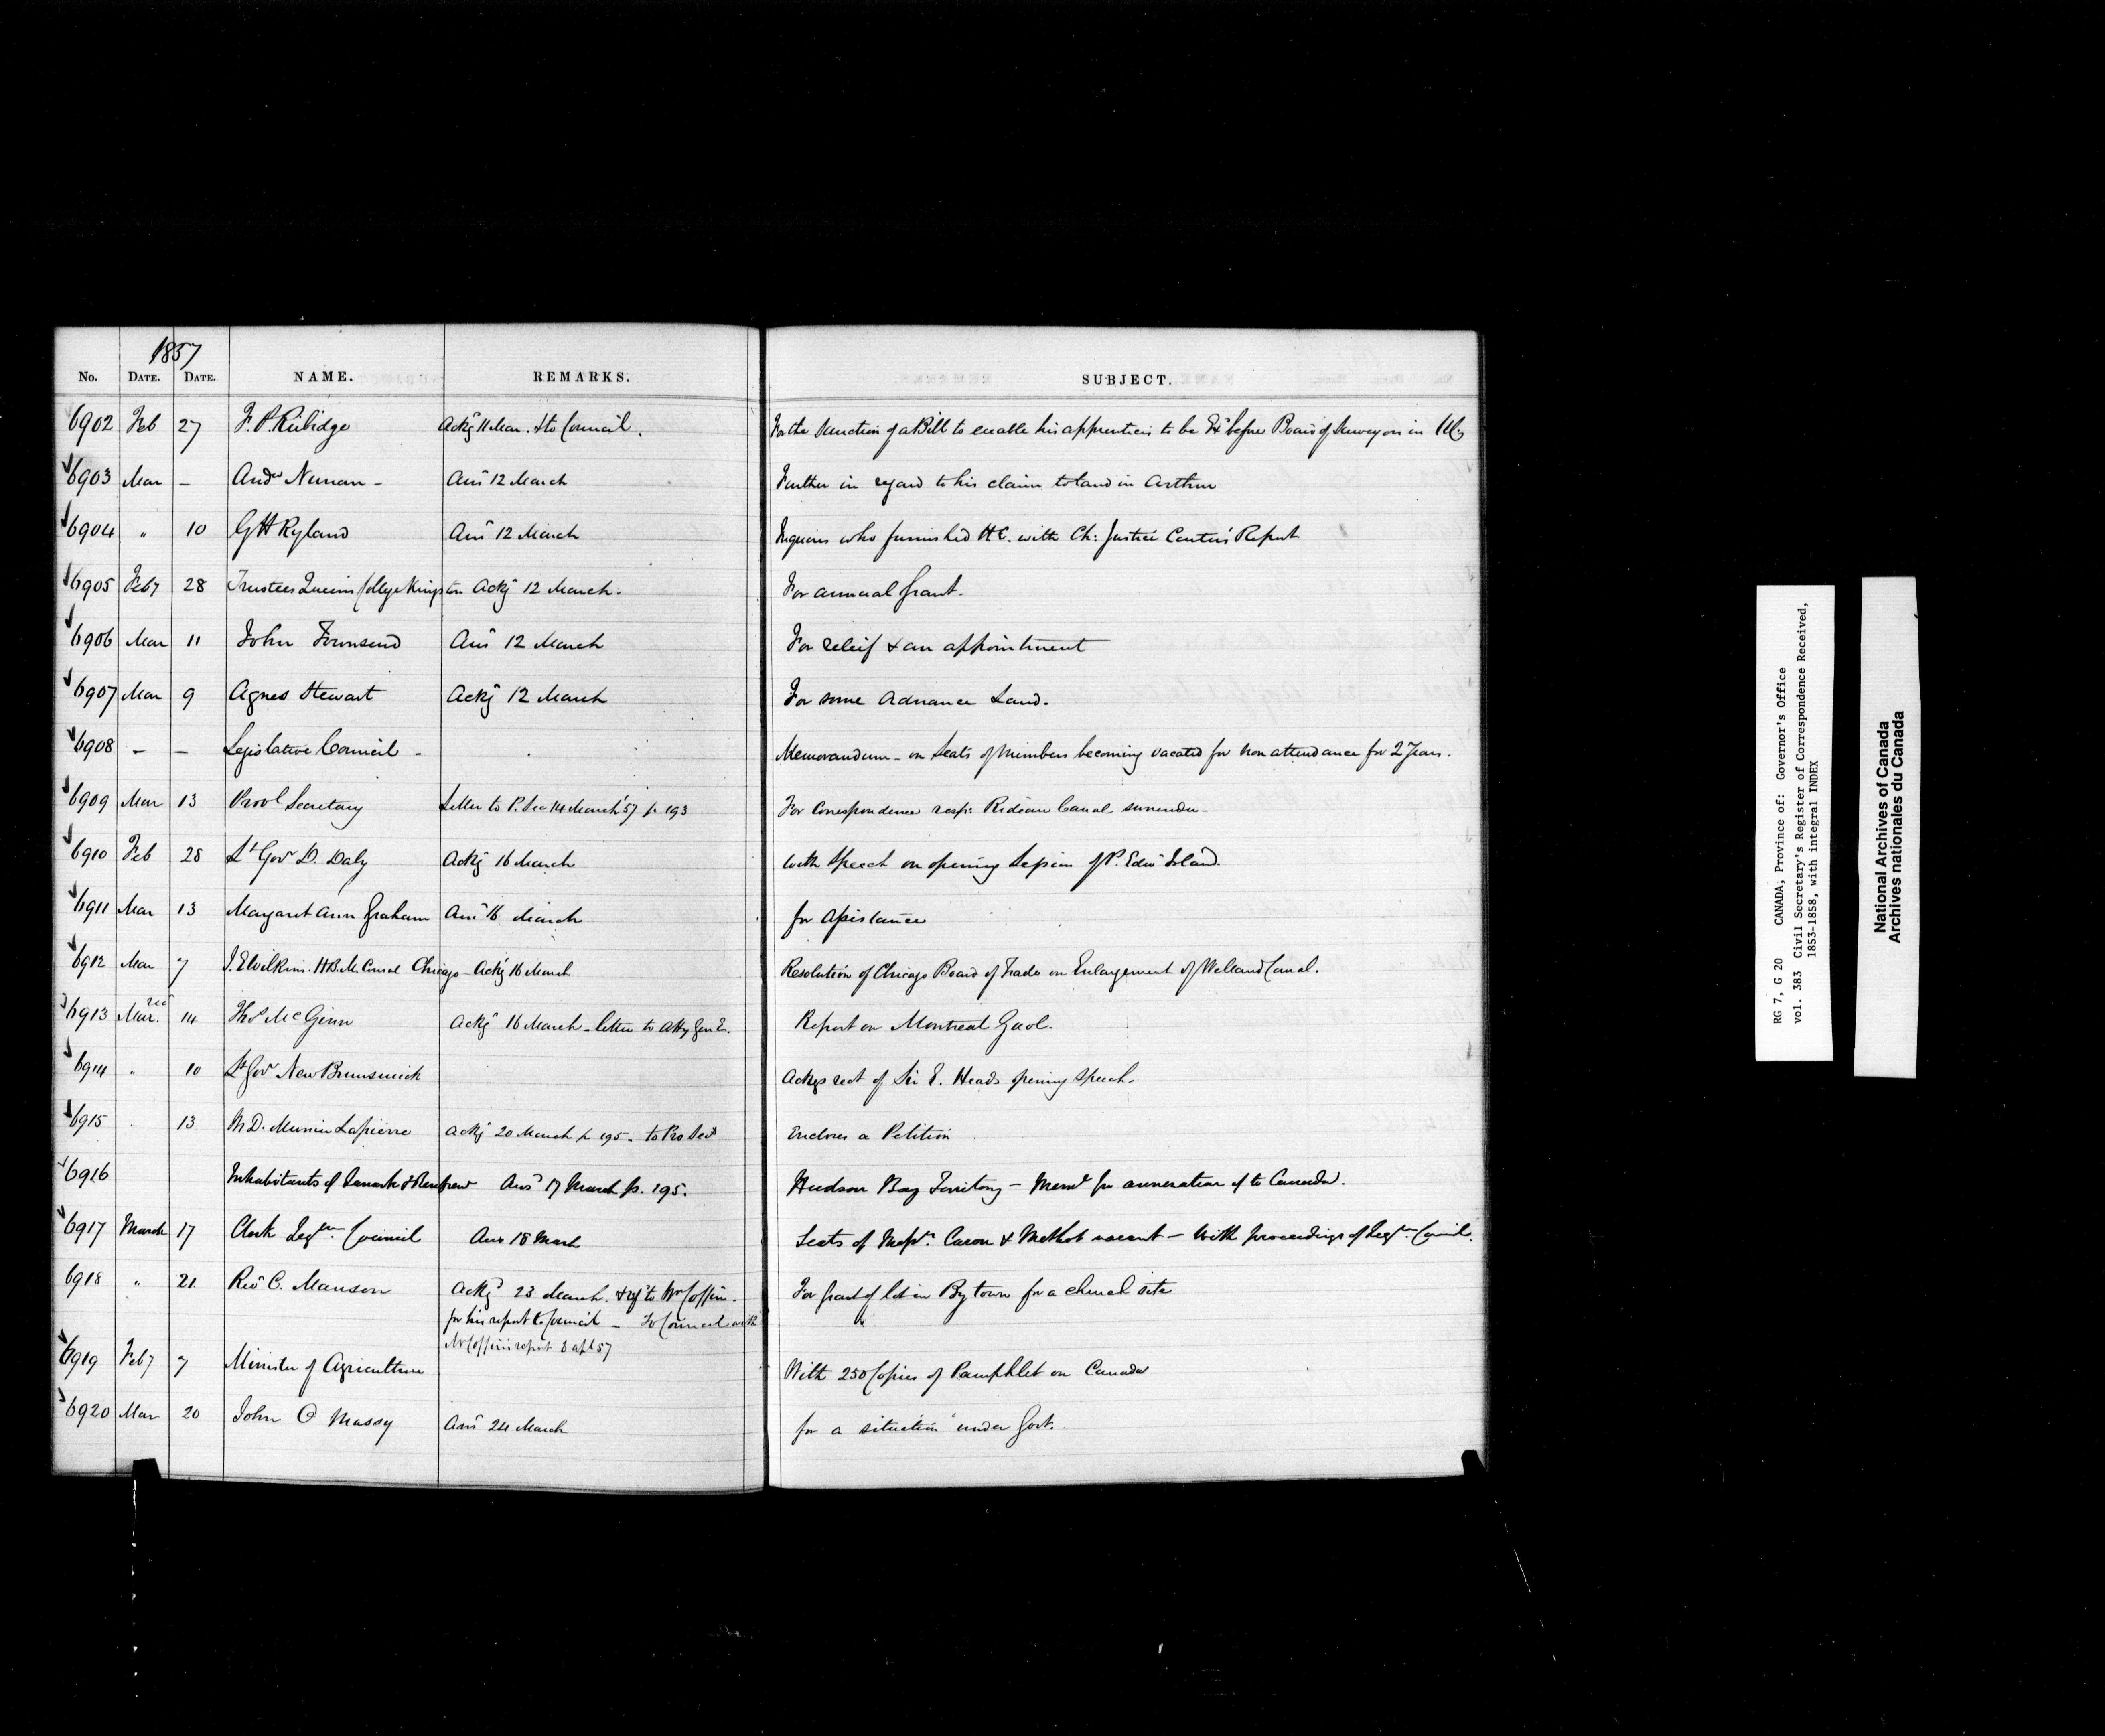 1857
No. DATE. DATE. NAME. REMARKS. SUBJECT.
6902 Feb 27 F. P. Rubidge Ackg 11 Mar. & to Council. For the Sanction of a Bill to enable his apprentices to be Exd before Board of Surveyors in
6903 Mar – Andw Nunan – Ansd 12 March Further in regard to his claim to land in Arthur
6904 " 10 G H Ryland Ansd 12 March Inquires who furnished H.E. with Ch: Justice Report
6905 Feby 28 Trustees Queens College Kingston Ackg 12 March. For annual Grant.
6906 Mar 11 John Townsend Ansd 12 March For releif & an appointment
6907 Mar 9 Agnes Stewart Ackg 12 March For some Land.
6908 – – Legislative Council – Memorandum – on Seats of Members becoming vacated for non attendance for 2 Years.
6909 Mar 13 Provl Secretary Letter to P. Sec 14 March '57 p 193 For Correspondence resp: Rideau Canal surrender –
6910 Feb 28 Lt Govr D. Daly Ackg 16 March With Speech on opening Session of P. Edwd Island.
6911 Mar 13 Margaret Ann Graham Ansd 16 March for Assistance
6912 Mar 7 J. E Wilkins. H B. M. Consul Chicago – Ackg 16 March Resolution of Chicago Board of Trade on Enlargement of Welland Canal.
6913 Mar. recd 14 Thos McGinn Ackg 16 March – letter to Atty Gen E. Report on Montreal Gaol.
6914 " 10 Lt Govr New Brunswick Ackgs rect of Sir E. Heads opening Speech.
6915 " 13 M D. Meunier Lapierre Ackg 20 March p 195. to Pro Secy Encloses a Petition
6916 Inhabitants of Lanark & Renfrew Ansd 17 March p. 195. Hudson Bay Territory – Meml for annexation of to Canada.
6917 March 17 Clerk Legve Council Ansd 18 March Seats of Messrs Caron & Methot vacant – With proceedings of Legve Council.
6918 " 21 Revd C. Manson Ackg 23 March. & refd to Wm Coffin. For Grant of lot in Bytown for a church site
for his report to Council – To Council with
Mr Coffin's report 6 Apl 57
6919 Feby 7 Minister of Agriculture With 250 Copies of Pamphlet on Canada
6920 Mar 20 John O Massy Ansd 24 March for a situation under Govt.
RG 7, G 20 CANADA, Province of: Governor's Office
vol. 383 Civil Secretary's Register of Correspondence Received,
1853-1858, with integral INDEX
National Archives of Canada
Archives nationales du Canada